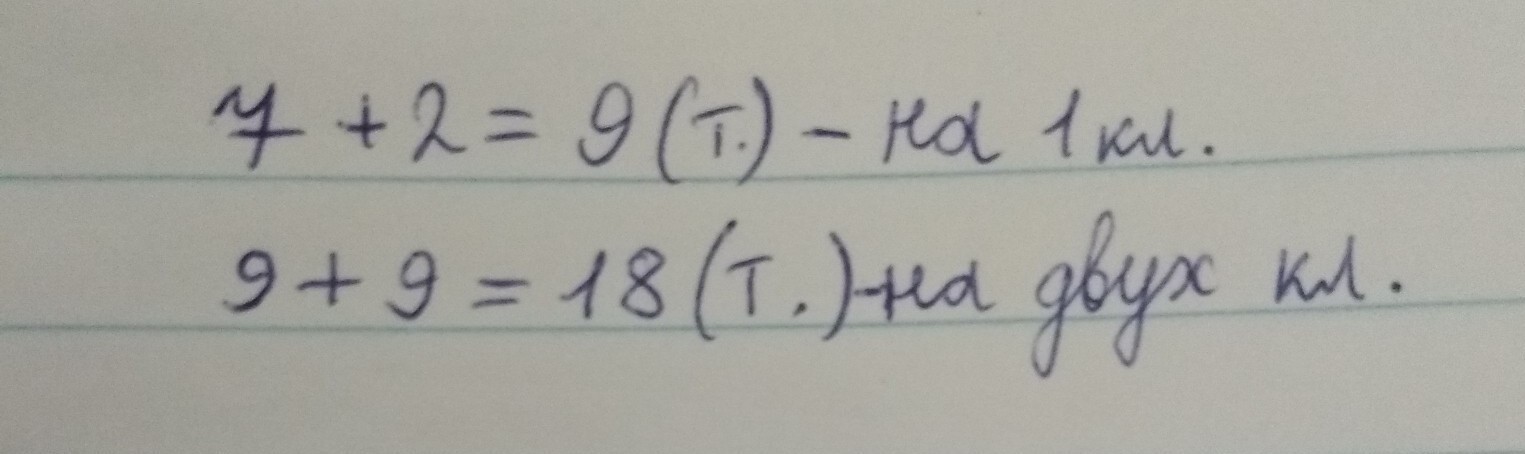 7 + 2 = 9 (т.) - на 1 кл.
9 + 9 = 18 (т.) - на двух кл.